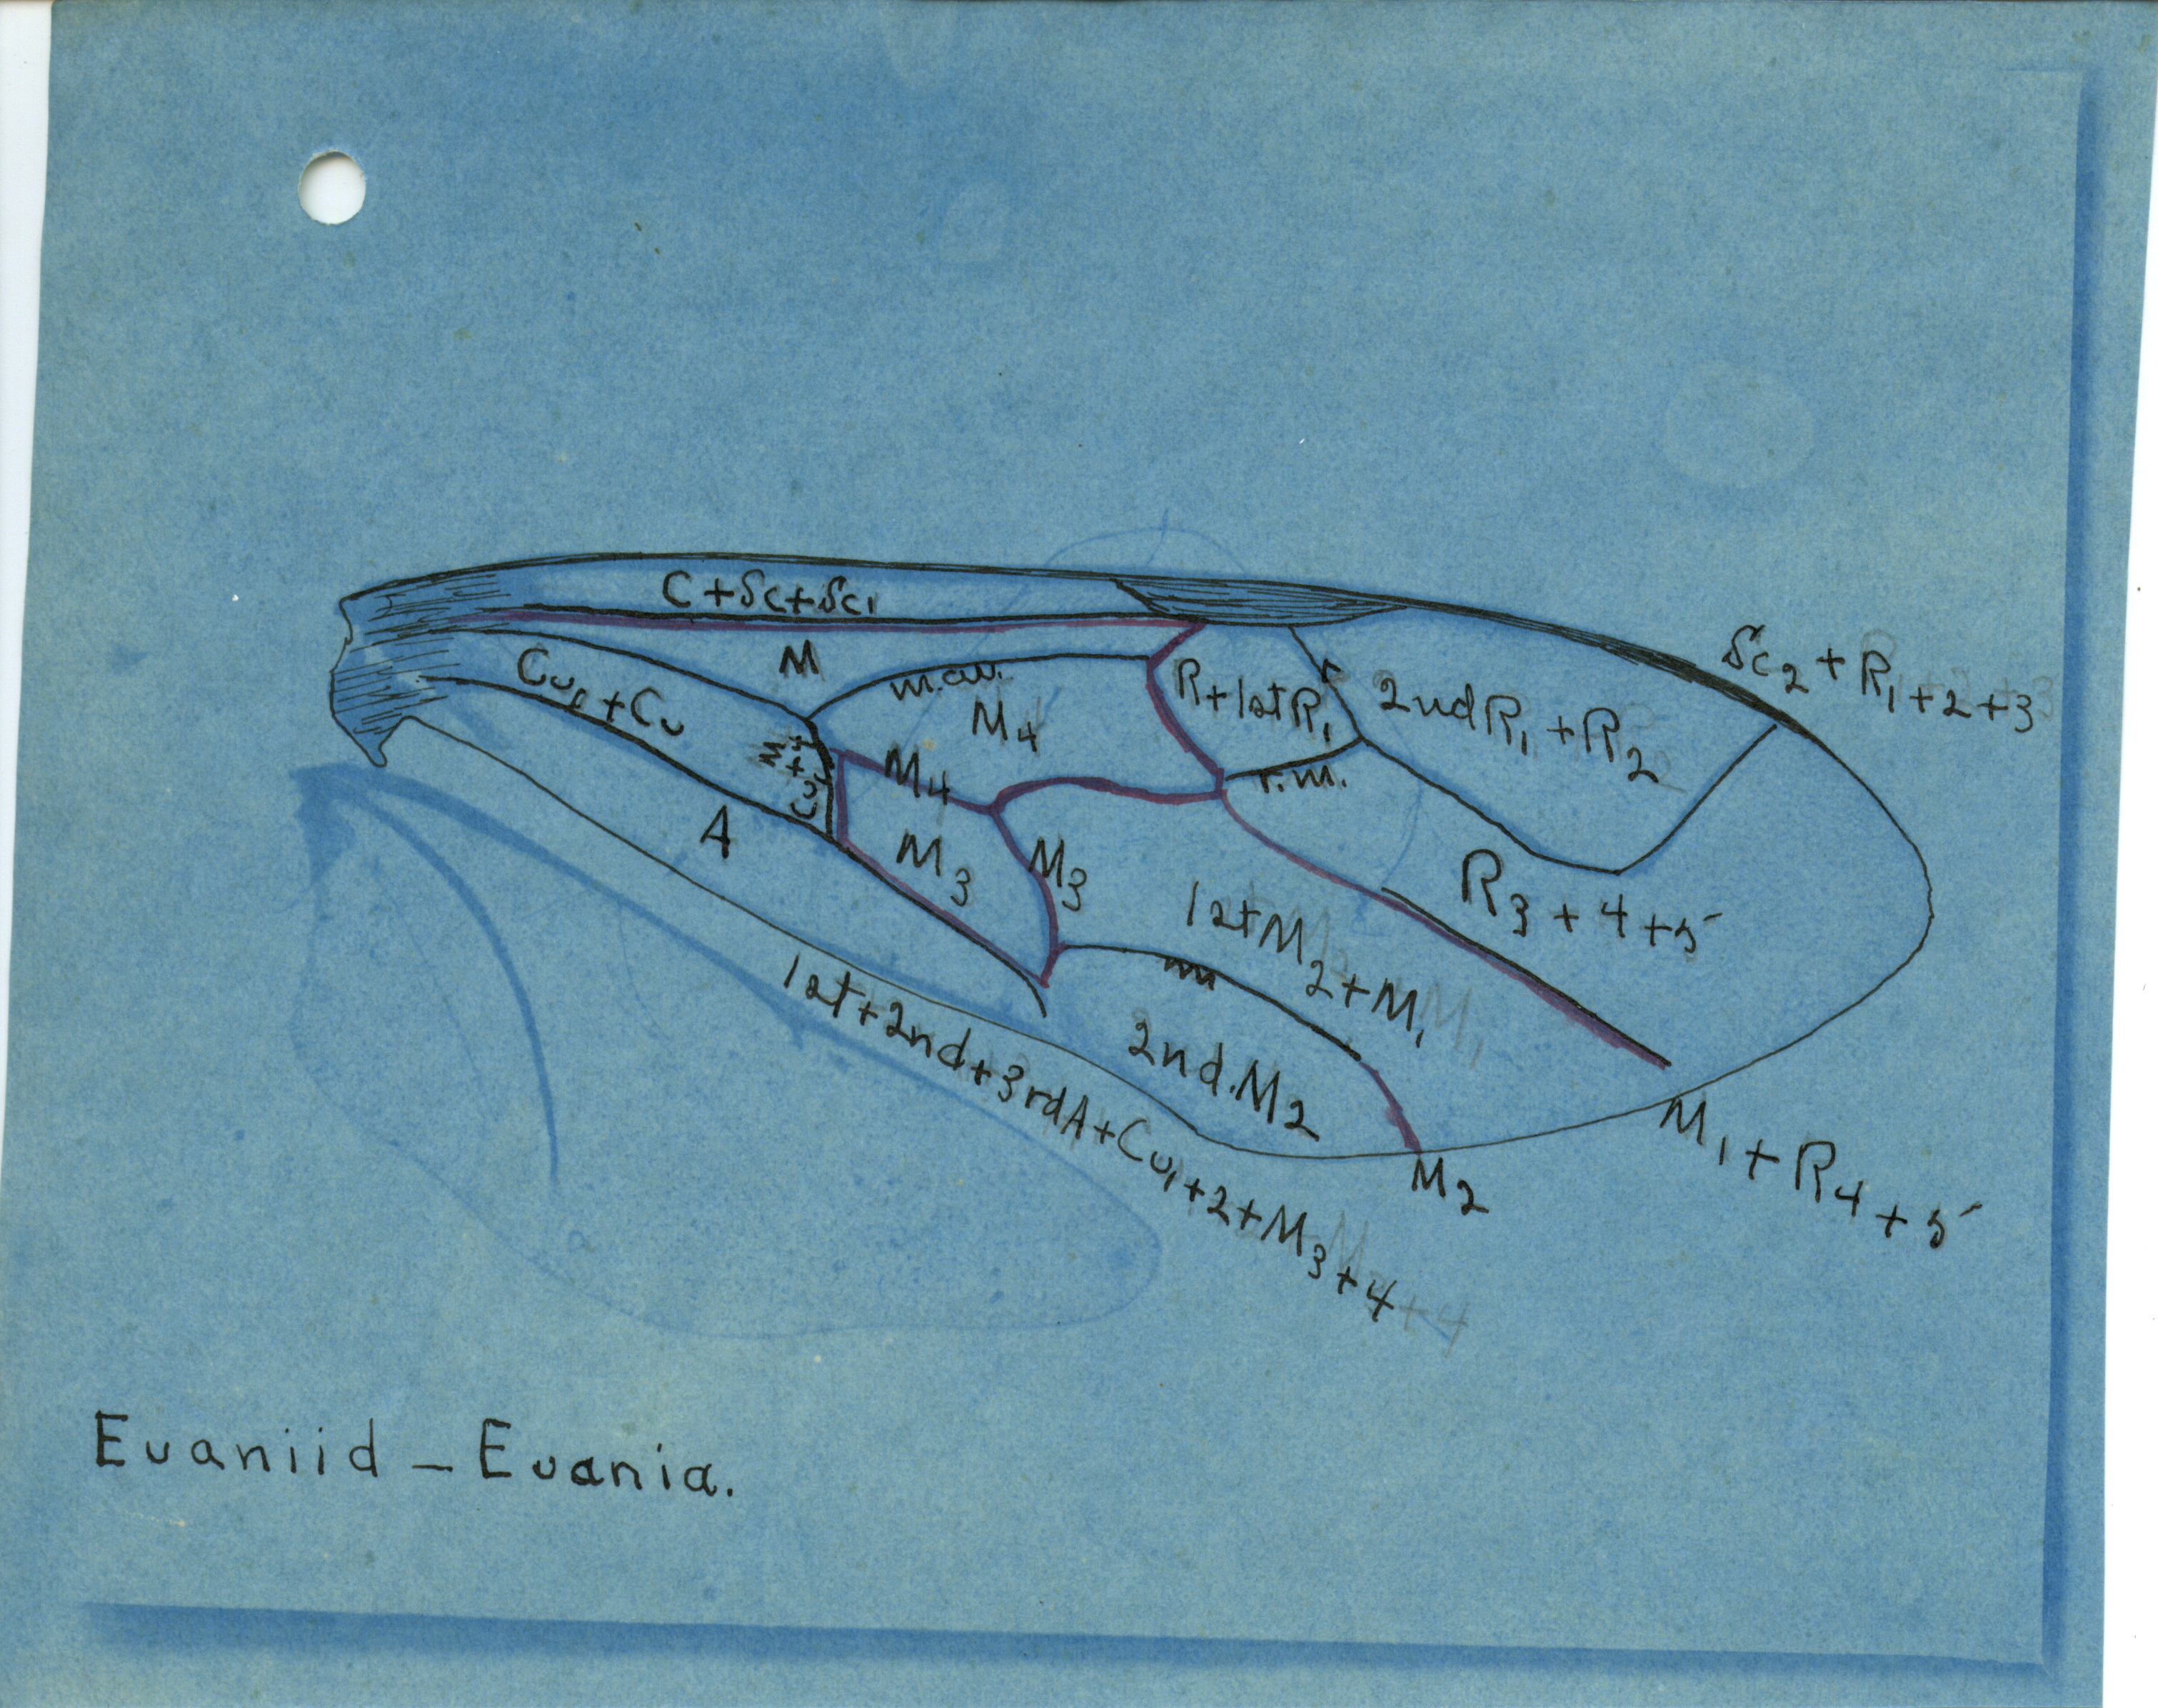 C + Sc + Sc1
M
m.cu.
Cu1 + Cu
M4
R + 1st R1
r
2nd R1 + R2
Sc2 + R1+2+3
M + Cu
M4
r.m.
A
M3
M3
R3+4+5
1st M2 + M1
m
1st + 2nd + 3rd A + Cu1+2 + M3+4
2nd. M2
M2
M1 + R4+5
Evaniid - Evania.